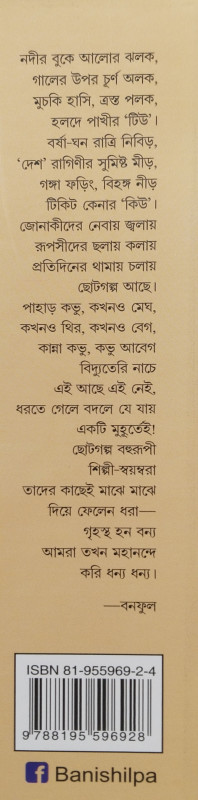 নদীর বুকে আলোর ঝলক,
গালের উপর চূর্ণ অলক,
মুচকি হাসি, ত্রস্ত পলক,
হলদে পাখীর ‘টিউ’।
বর্ষা-ঘন রাত্রি নিবিড়,
‘দেশ’ রাগিণীর সুমিষ্ট মীড়,
গঙ্গা ফড়িং, বিহঙ্গ নীড়
টিকিট কেনার ‘কিউ’।
জোনাকীদের নেবায় জ্বলায়
রূপসীদের ছলায় কলায়
প্রতিদিনের থামায় চলায়
ছোটগল্প আছে।
পাহাড় কভু, কখনও মেঘ,
কখনও থির, কখনও বেগ,
কান্না কভু, কভু আবেগ
বিদ্যুতেরি নাচে
এই আছে এই নেই,
ধরতে গেলে বদলে যে যায়
একটি মুহূর্তেই!
ছোটগল্প বহুরূপী
শিল্পী-স্বয়ম্বরা
তাদের কাছেই মাঝে মাঝে
দিয়ে ফেলেন ধরা—
গৃহস্থ হন বন্য
আমরা তখন মহানন্দে
করি ধন্য ধন্য।
—বনফুল
ISBN 81-955969-2-4
9 788195 596928
Banishilpa